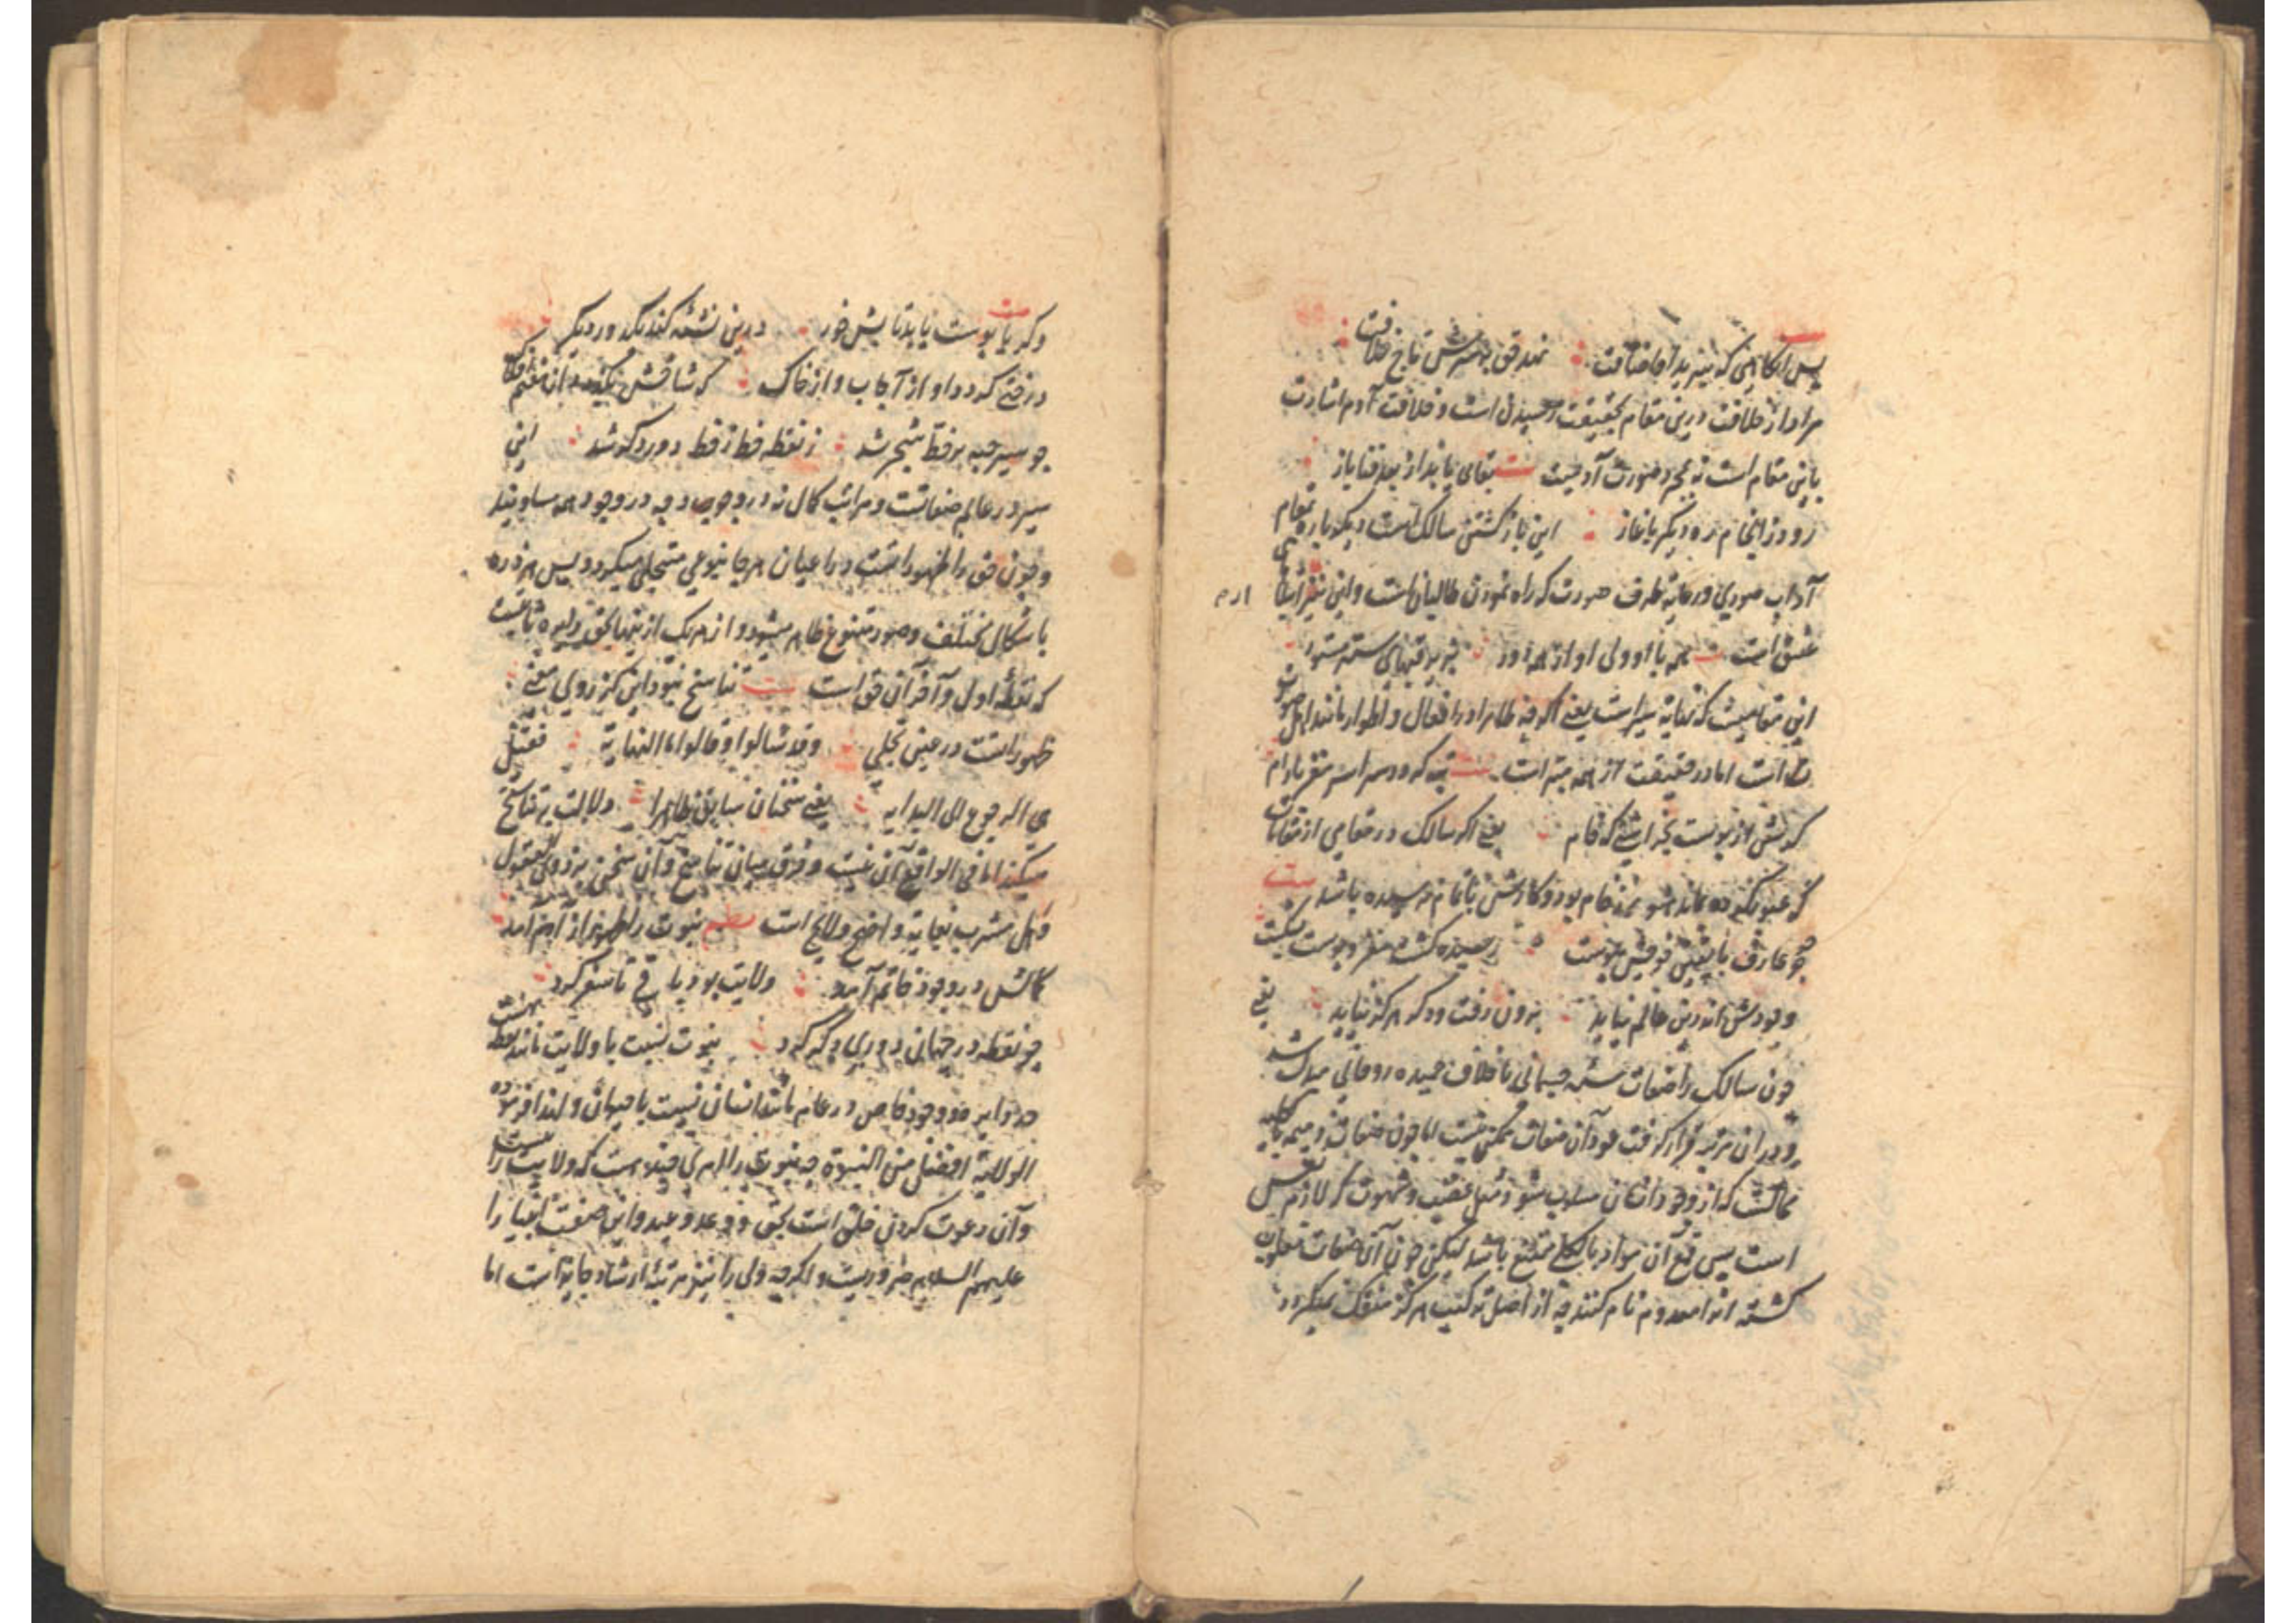 پس آنگاهی که ببرید او مسافت نهد حق بر سرش تاج خلافت
مراد از خلافت درین مقام بحقیقت رسیدن است و خلافت آدم اشارت
باین مقام است نه مجرد صورت آدمیت بیت بقای یابد از بعد فنا باز
رود ز انجام ره دیگر باغاز این باز گشتن سالک است دیگر باره بمقام
آداب صوری و رعایت طرف صورت که راه نمودن طالبان است و این نیز
عشق است همه با او ولی او از همه دور بزیر قبهای ستر مستور
این مقامیست که نهایة سیر است یعنی اگرچه ظاهرا در افعال و اطوار مانند اهل
است اما در حقیقت از همه مبرا است تبه گردد سراسر مغز بادام
گرش از پوست بخراشی گه خام یعنی اگر سالک در مقامی از مقامات
که عبور نکرده بماند هنوز خام بود و کارش باتمام نرسیده باشد بیت
چو عارف با یقین خویش پیوست رسیده گشت مغز و پوست بشکست
وجودش اندرین عالم نپاید برون رفت و دگر هرگز نیاید یعنی
چون سالک را صفات جسمانی باخلاق حمیده روحانی مبدل شد
و در ان مرتبه قرار گرفت عود آن صفات ممکن نیست اما چون صفات ذمیمه
که از وجود انسان مسلوب شود مثل غضب و شهوت که لازم نفس
است پس قمع آن مواد بالکلی ممتنع باشد لیکن چون آن صفات مغلوب
گشته اند معدوم نام کنند چه از اصل ترکیب هرگز منفک نمیگردد
وگر با پوست یابد تابش خور درین نشئه کند یک دور دیگر
درختی گردد او از آب و از خاک که شاخش بگذرد از هفتم افلاک
چو سیر حبه بر خط شجر شد ز نقطه خط ز خط دور دگر شد این
سیر در عالم صفاتست و مراتب کمال نه در وجود چه در وجود همه مساویند
و چون حق را ظهوراتست در اعیان هر جا بنوعی متجلی میگردد پس هر ذره
باشکال مختلف و صور متنوع ظاهر میشود و از هر یک ازینها
که نقطهٔ اول و آخر آن حق است بیت تناسخ نبود این کز روی معنی
ظهوراتست در عین تجلی وقد سئلوا و قالوا ما النهایة فقیل
هی الرجوع الی البدایه یعنی سخنان سابق ظاهرا دلالت بر تناسخ
میکند اما فی الواقع آن نیست و فرق میان تناسخ و آن سخن نزد
و اهل مشرب بغایة واضح و لایح است نبوت را ظهور از آدم آمد
کمالش در وجود خاتم آمد ولایت بود باقی تا سفر کرد
چو نقطه در جهانی دوری دگر کرد نبوت نسبت با ولایت مانند نقطه
و وجود خاص در عام مانند انسان نسبت با حیوان و لهذا فرموده
الولایة افضل من النبوة چه نبوت را امری
و آن دعوت کردن خلق است بحق و وعد و وعید و این صفت انبیا را
علیهم السلام ضروریست و اگرچه ولی را نیز مرتبهٔ ارشاد جایز است اما